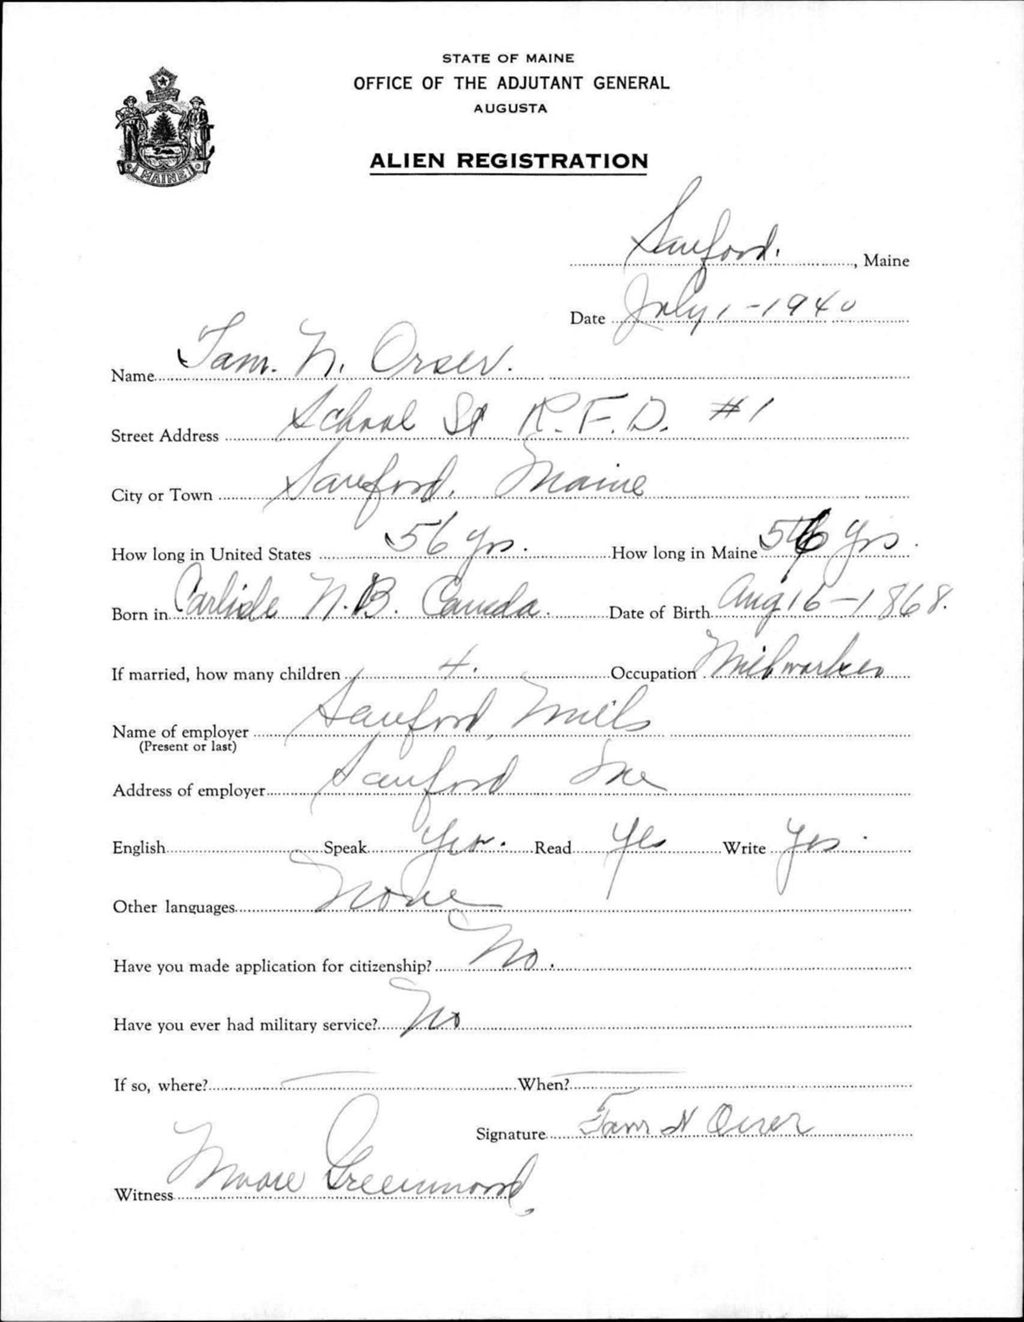 STATE OF MAINE
OFFICE OF THE ADJUTANT GENERAL
AUGUSTA
MAINE
ALIEN REGISTRATION
Sanford. , Maine
Date July 1 - 1940
Name Tam. N. Orser.
Street Address School St R.F.D. #1
City or Town Sanford, Maine
How long in United States 56 yrs. How long in Maine 56 yrs.
Born in Carlisle N.B. Canada. Date of Birth Aug 16 - 1868.
If married, how many children 4. Occupation Millworker
Name of employer Sanford, Mills
(Present or last)
Address of employer Sanford Me
English Speak Yes. Read Yes Write Yes.
Other languages None
Have you made application for citizenship? No.
Have you ever had military service? No
If so, where? — When? —
Signature Tam N Orser
Witness Greenwood